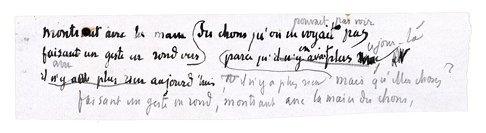 pouvait pas voir
montrant avec la main (des choses qu'on ne voyait pas
ce jour-là
faisant un geste en rond vers (parce qu'il n'y avait plus
il n'y a plus rien aujourd'hui il n'y a plus rien mais quelles choses ?
faisant un geste en rond, montrant avec la main des choses,